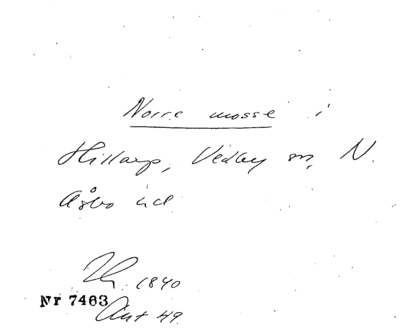 Norre mosse i
Hillarp, Vedby sn, N.
Åsbo hd
1840
Nr 7463
Ant 49